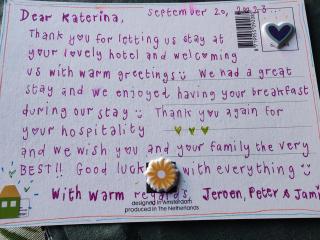 Dear Katerina,
September 20, 2023...
Thank you for letting us stay at
your lovely hotel and welcoming
us with warm greetings We had a great
stay and we enjoyed having your breakfast
during our stay Thank you again for
your hospitality
and we wish you and your family the very
BEST!! Good luck with everything
With warm regards, Jeroen, Peter &
designed in Amsterdam
produced in The Netherlands